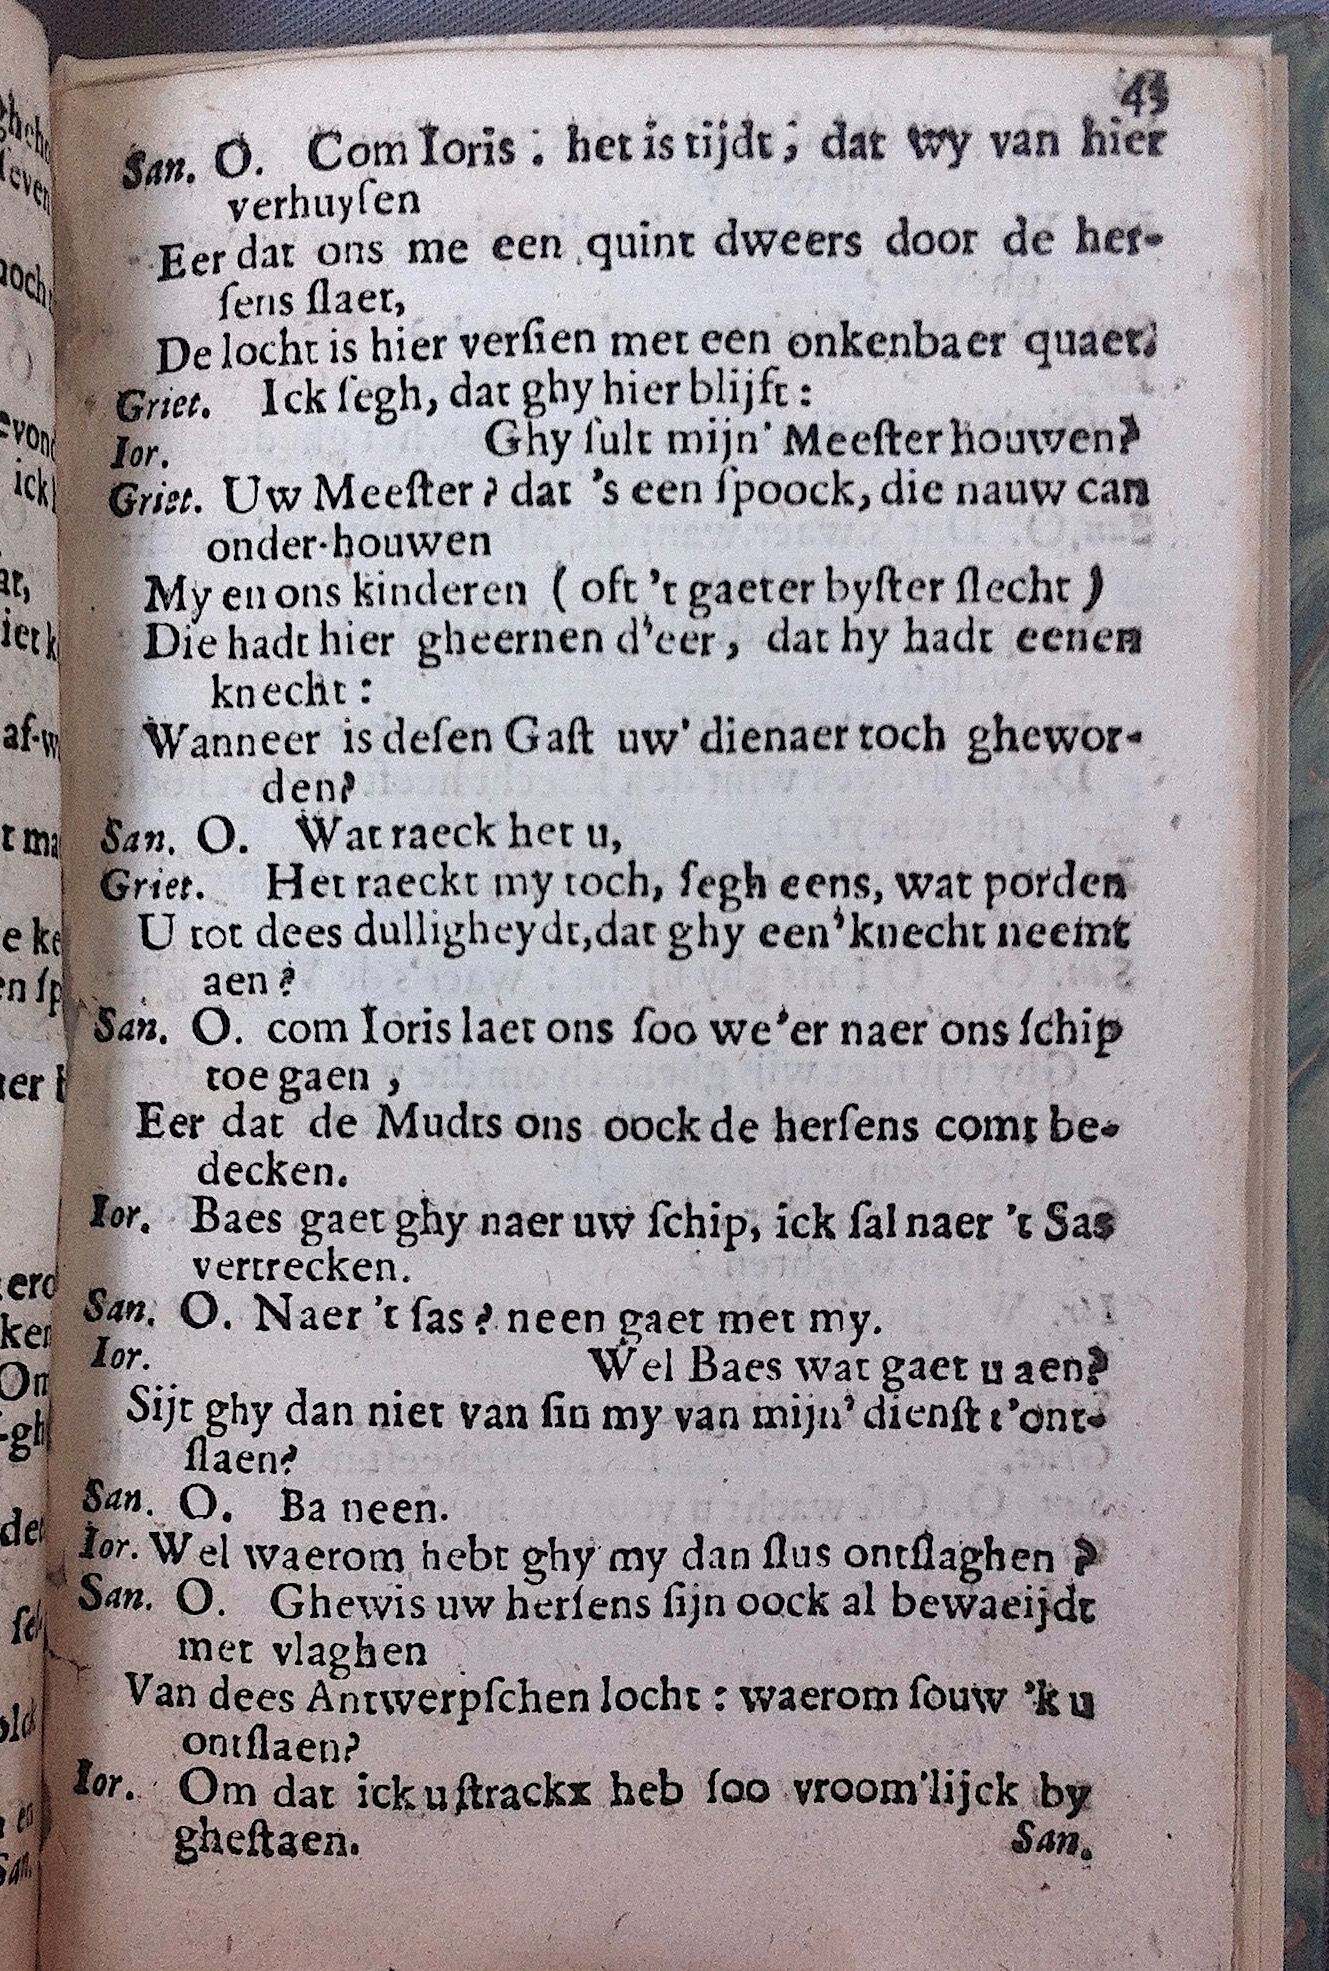 43
San. O. Com Ioris: het is tijdt; dat wy van hier
verhuyſen
Eer dat ons me een quint dweers door de her-
ſens ſlaet,
De locht is hier verſien met een onkenbaer quaet.
Griet. Ick ſegh, dat ghy hier blijft:
Ior. Ghy ſult mijn' Meeſter houwen?
Griet. Uw Meeſter? dat 's een ſpoock, die nauw can
onder-houwen
My en ons kinderen ( oft 't gaeter byſter ſlecht )
Die hadt hier gheernen d'eer, dat hy hadt eenen
knecht:
Wanneer is deſen Gaſt uw' dienaer toch ghewor-
den?
San. O. Wat raeck het u,
Griet. Het raeckt my toch, ſegh eens, wat porden
U tot dees dulligheydt, dat ghy een' knecht neemt
aen?
San. O. com Ioris laet ons ſoo we'er naer ons ſchip
toe gaen,
Eer dat de Mudts ons oock de herſens comt be-
decken.
Ior. Baes gaet ghy naer uw ſchip, ick ſal naer 't Sas
vertrecken.
San. O. Naer 't ſas? neen gaet met my.
Ior. Wel Baes wat gaet u aen?
Sijt ghy dan niet van ſin my van mijn' dienſt t'ont-
ſlaen?
San. O. Ba neen.
Ior. Wel waerom hebt ghy my dan ſlus ontſlaghen?
San. O. Ghewis uw herſens ſijn oock al bewaeijdt
met vlaghen
Van dees Antwerpſchen locht: waerom ſouw 'k u
ontſlaen?
Ior. Om dat ick u ſtrackx heb ſoo vroom'lijck by
gheſtaen.
San.